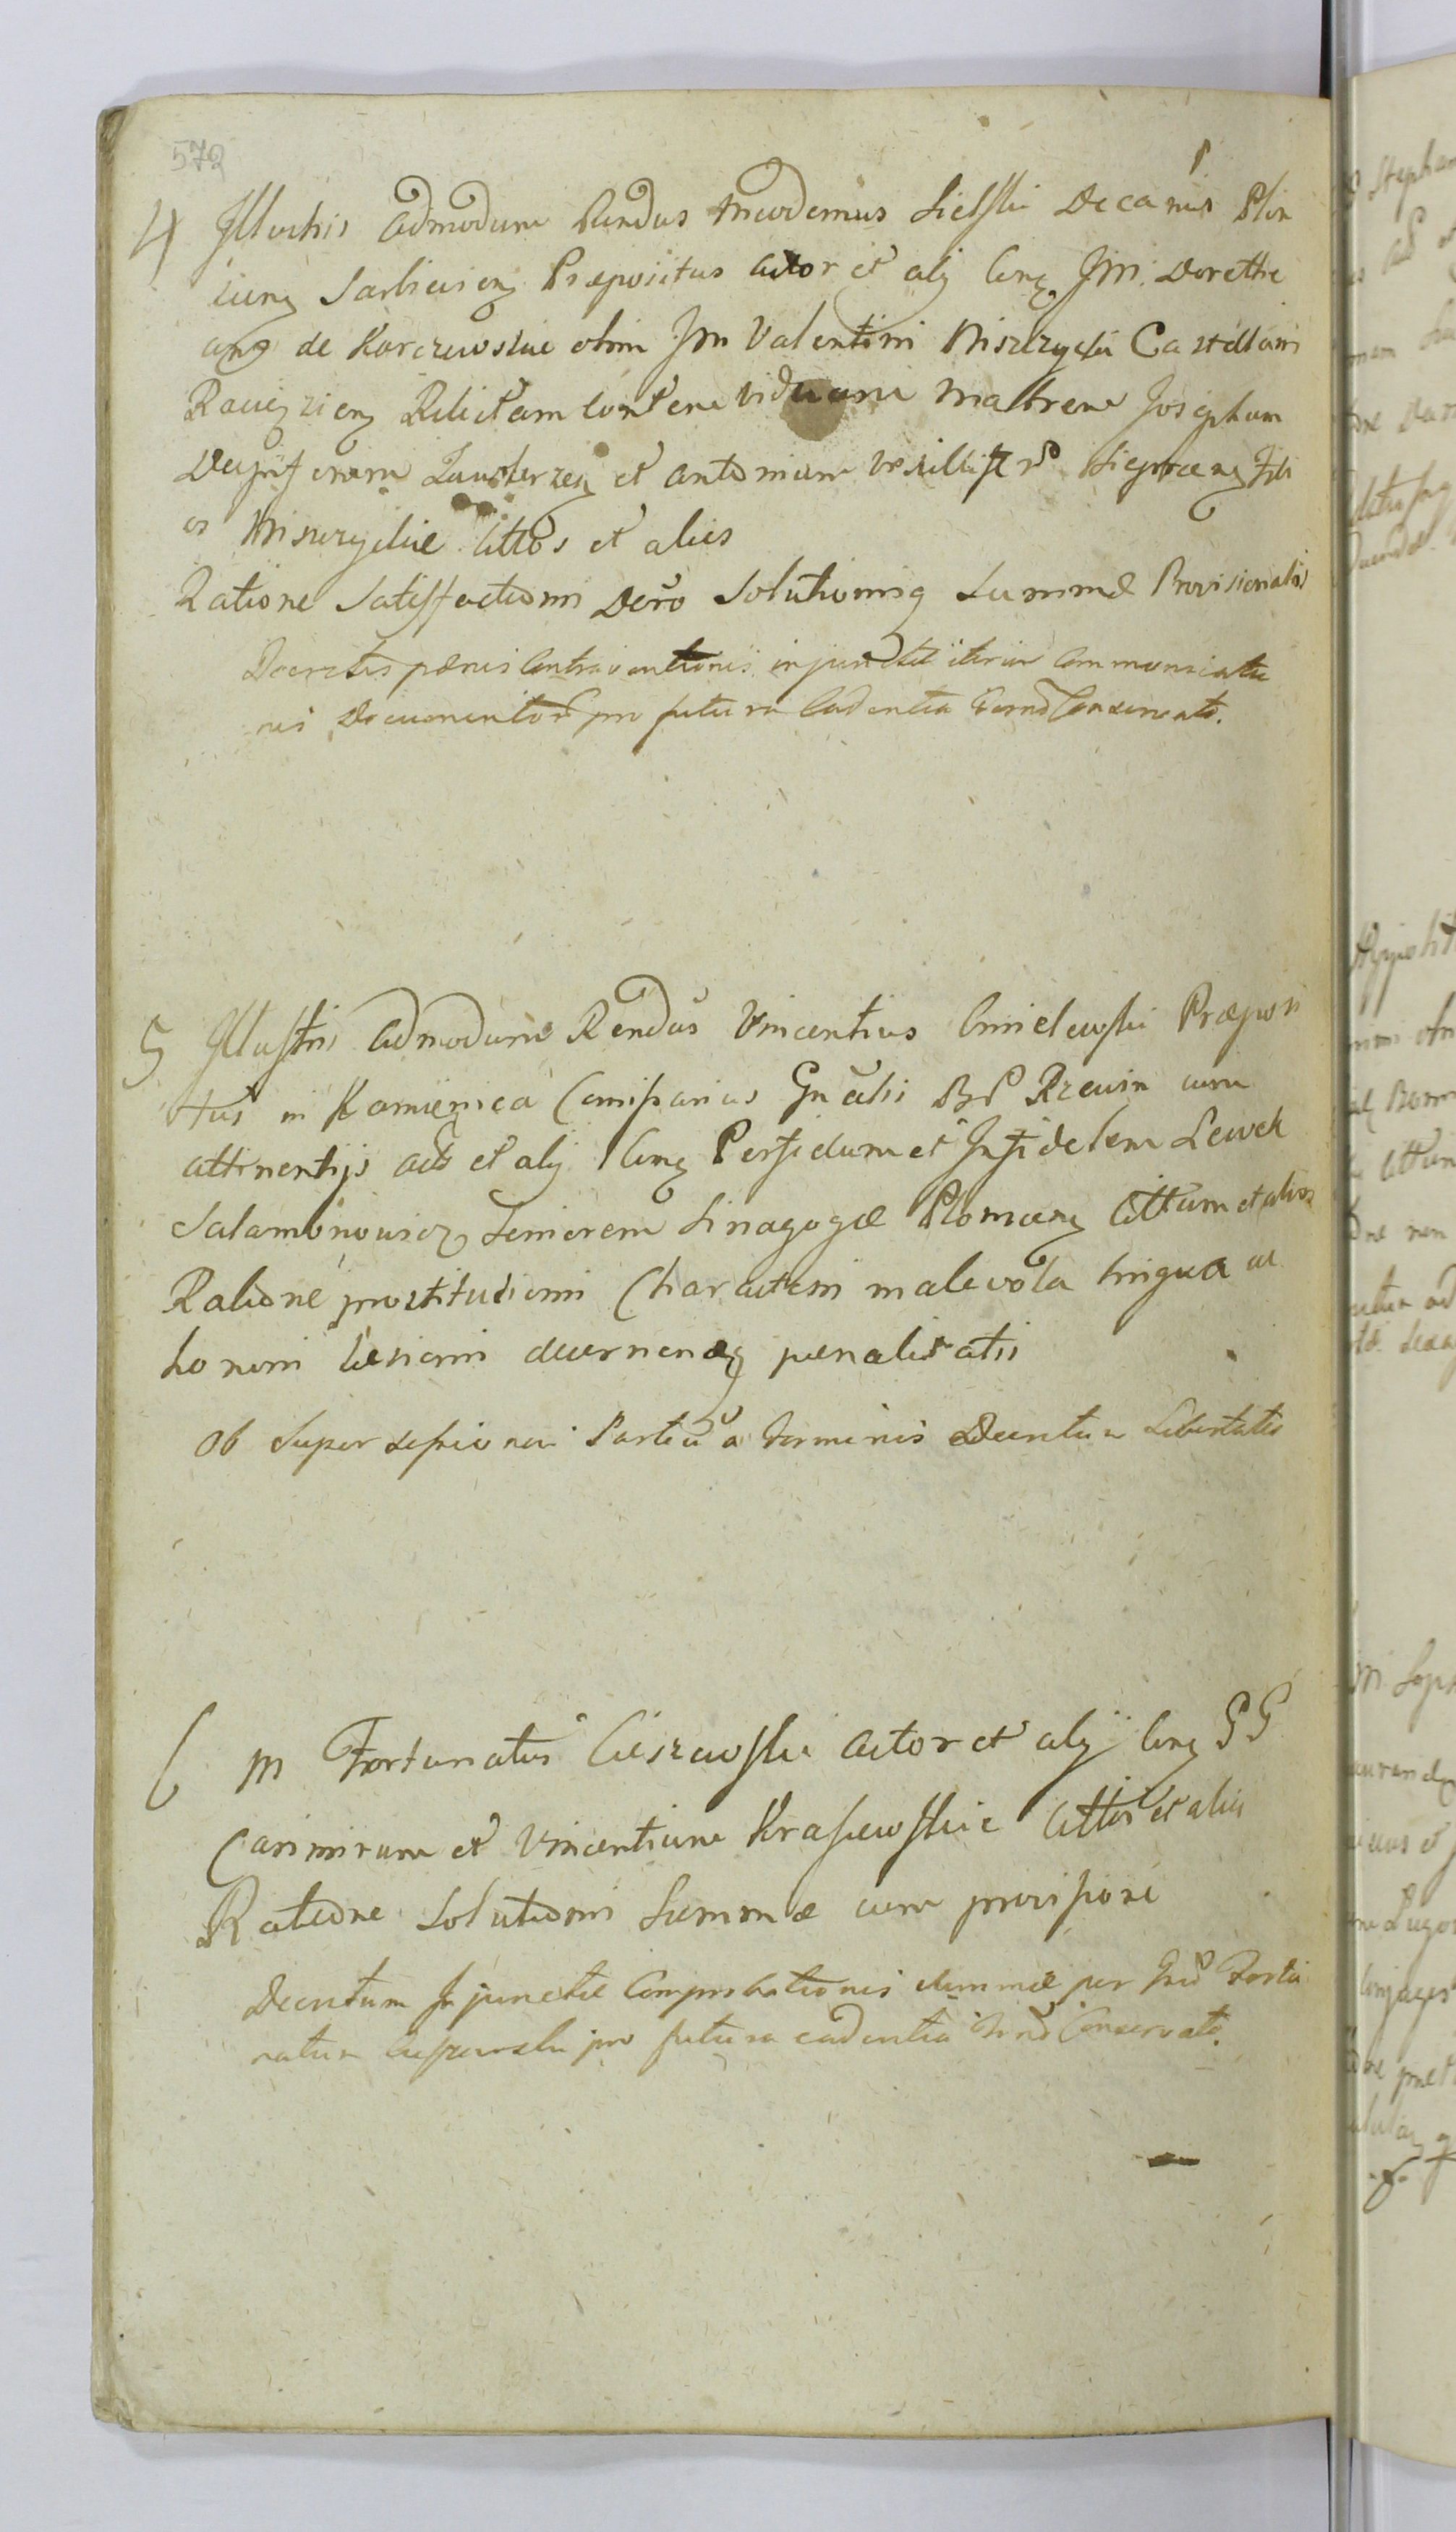 572
4 Illustris Admodum Rendus Nicodemus Sielski Decanus Plon
ciens Sarbieviens Præpositus Actor et alij Cons Jm Dorothe
ams de Karczewskie olim Jm Valentini Miszczycki Castellani
Raciąziens Relictam Consortem viduam Matrem Josephum
Dapiferum Zawskrzes et Antonium Vexilliferum Sieprcens Fili
os Miszczyckie Cittos et alios
Ratione Satisfactionis Decro Solutionisq Summæ Provisionalis
Decretis pænis Contraventionis injunctæ iterum Communicatio
nis Documentor pro futura Cadentia Termo Conservato.
5 Illustris Admodum Rendus Vincentius Cmielewski Præposi
tus in Kamienica Commissarius Gnalis Bonor Rzewin cum
attinentijs Actor et alij Cons Perfidum et Infidelem Lewek
Salamonowicz Seniorem Sinagogæ Płonsens Cittum et alios
Ratione prostitutionis Characteris malevola lingua ac
honoris læsionis decernendæq pænalitatis
Ob Supersessionem Partiu a Terminis Decretum Libertatis
6 M Fortunatus Cieszewski Actor et alij Cons GG
Casimirum et Vincentium Krasiewskie Cittos et alios
Ratione Solutionis Summæ cum provisione
Decretum Injunctæ Comprobationis Summæ per Gnd Fortu
natum Cieszewski pro futura cadentia Termo Conservato.